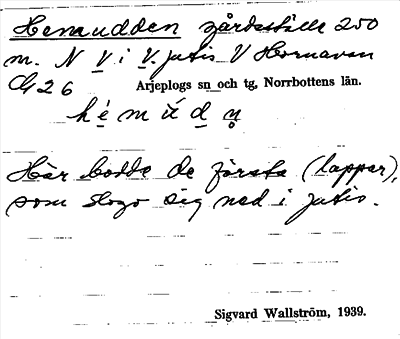 Hemudden gårdställe 200
m. N V i V. Jutis V Hornavan
G 26 Arjeplogs sn och tg, Norrbottens län.
Här bodde de första (lappar),
som slogo sig ned i Jutis.
Sigvard Wallström, 1939.